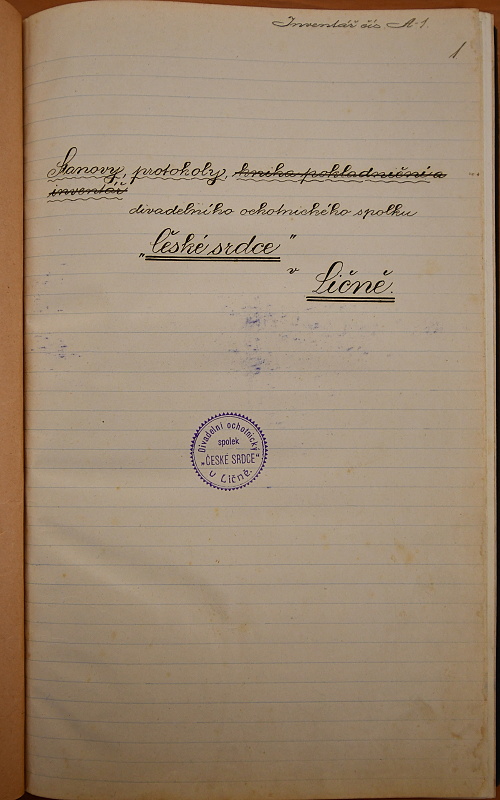 Inventář čís A-1.
1
Stanovy, protokoly, kniha pokladniční a
inventář
divadelního ochotnického spolku
„České srdce"
v
Ličně.
Divadelní ochotnický
spolek
„ČESKÉ SRDCE"
v Ličně.